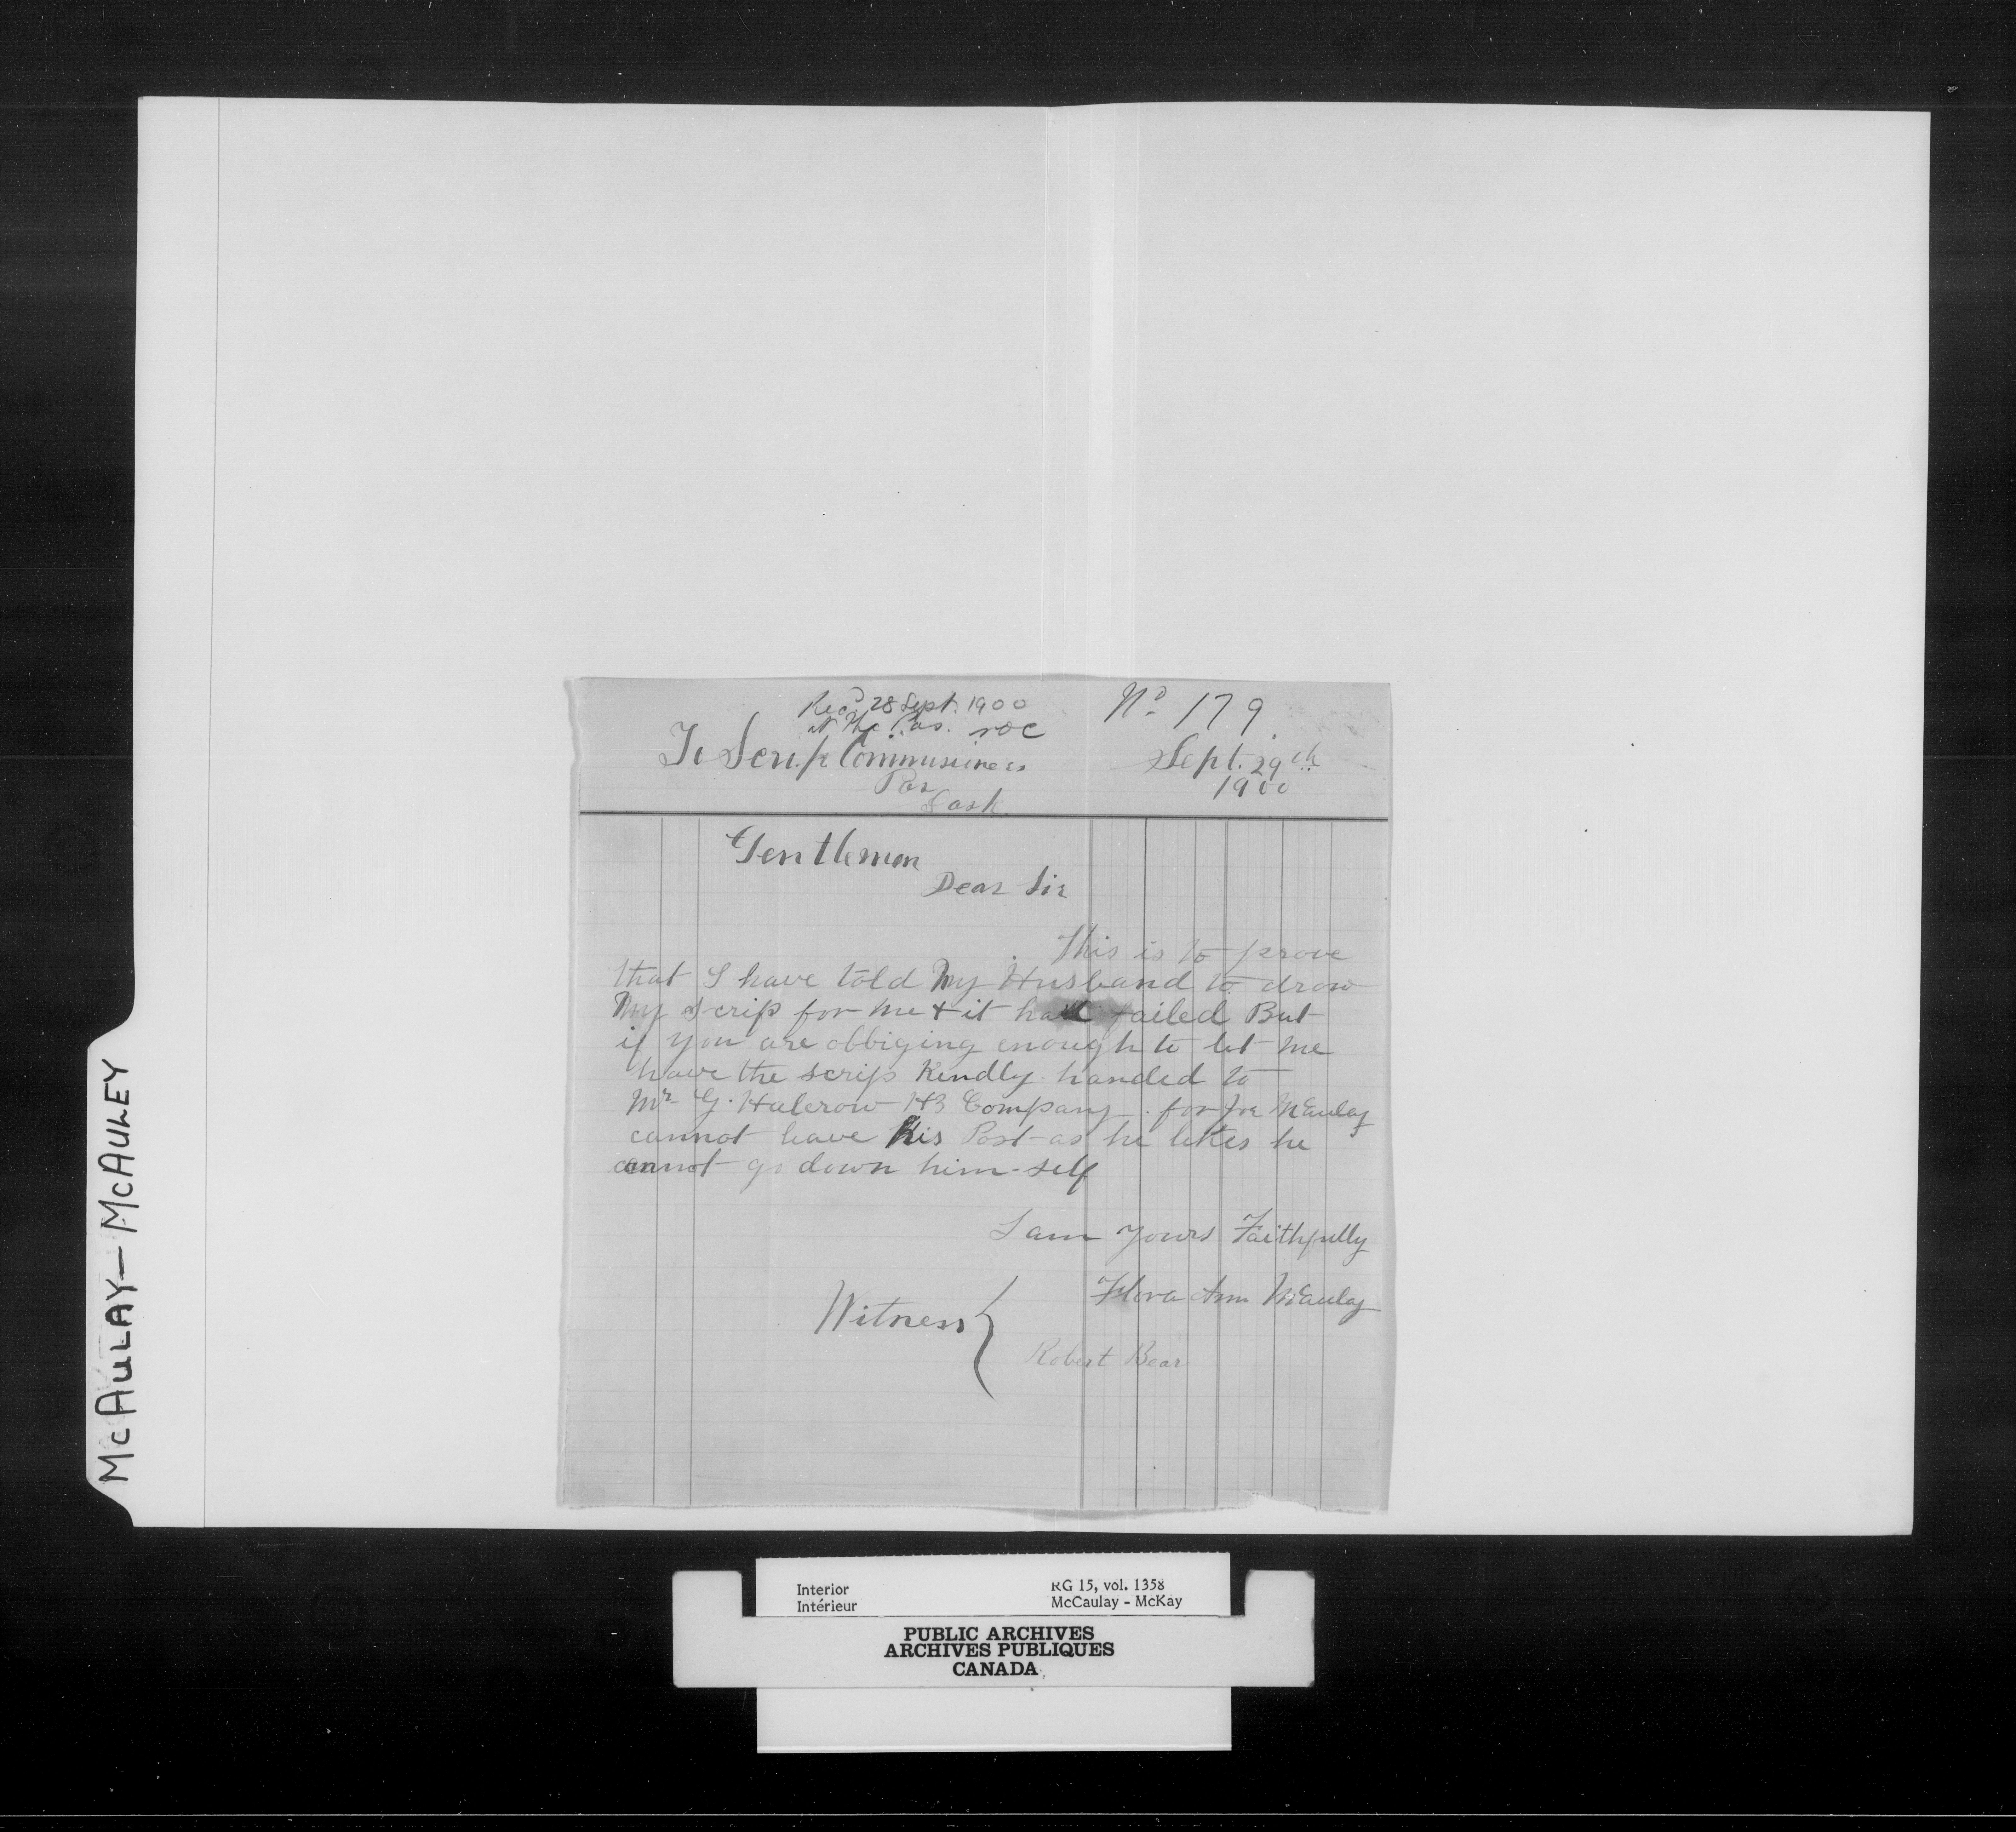 Rec'd 28 Sept. 1900
at The Pas. NOC
No. 179
To Scrip Commissioners
Pas
Sask
Sept. 29th
1900
Gentlemen
Dear Sir
This is to prove
that I have told My Husband to draw
My scrip for me & it had failed But
if you are obbiging enough to let me
have the scrip Kindly handed to
Mr G. Halcrow HB Company. for Joe McAulay
cannot leave his Post as he likes he
cannot go down him-self
I am Yours Faithfully
Flora Ann McAulay
Witness
Robert Bear
McAULAY-McAULEY
Interior
Intérieur
RG 15, vol. 1358
McCaulay - McKay
PUBLIC ARCHIVES
ARCHIVES PUBLIQUES
CANADA